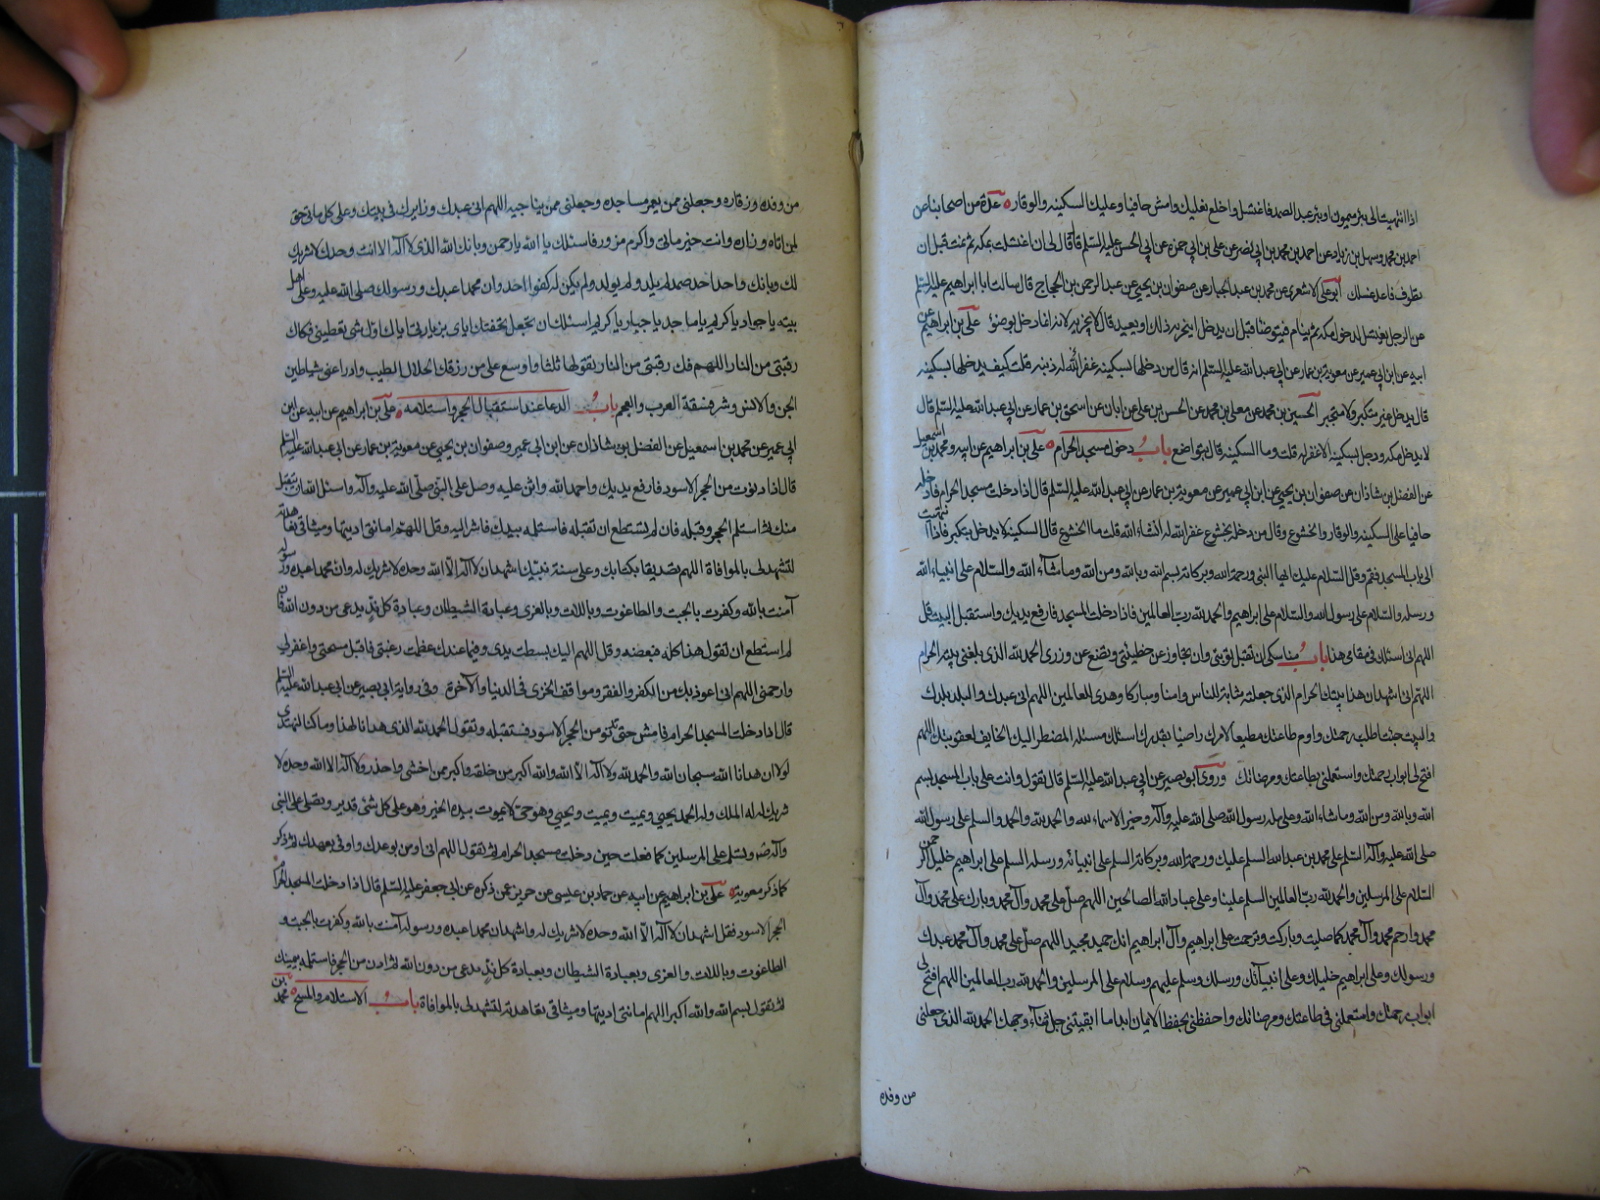 اذا انتهيت الى بئر ميمون او بئر عبد الصمد فاغتسل واخلع نعليك وامش حافيا وعليك السكينه والوقار عدة من اصحابنا عن
احمد بن محمد وسهل بن زياد عن احمد بن محمد بن ابي نصر عن علي بن ابي حمزه عن ابي الحسن عليه السلم قال قال لى ان اغتسلت بمكه ثم نمت قبل ان
تطوف فاعد غسلك ابو على الاشعرى عن محمد بن عبد الجبار عن صفوان بن يحيى عن عبد الرحمن بن الحجاج قال سالت ابا ابراهيم عليه السلم
عن الرجل يغتسل لدخول مكه ثم ينام فيتوضا قبل ان يدخل ايجزيه ذلك او يعيد قال لا يجزيه لانه انما دخل بوضوء على بن ابراهيم عن
ابيه عن ابن ابي عمير عن معوية بن عمار عن ابي عبد الله عليه السلم انه قال من دخلها بسكينه غفر الله له ذنبه قلت كيف يدخلها بسكينه
قال يدخل غير متكبر ولا متجبر الحسين بن محمد عن معلى بن محمد عن الحسن بن على عن ابان عن اسحق بن عمار عن ابي عبد الله عليه السلم قال
لا يدخل مكه رجل بسكينه الا غفر له قلت وما السكينه قال يتواضع باب دخول مسجد الحرام على بن ابراهيم عن ابيه ومحمد بن اسمعيل
عن الفضل بن شاذان عن صفوان بن يحيى عن ابن ابي عمير عن معوية بن عمار عن ابي عبد الله عليه السلم قال اذا دخلت مسجد الحرام فادخله
حافيا على السكينه والوقار والخشوع وقال من دخله بخشوع غفر الله له انشاء الله قلت ما الخشوع قال السكينه لا يدخل بتكبر فاذا انتهيت
الى باب المسجد فقم وقل السلام عليك ايها النبى ورحمة الله وبركاته بسم الله وبالله ومن الله وما شاء الله والسلام على انبياء الله
ورسله والسلام على رسول الله والسلام على ابراهيم والحمد لله رب العالمين فاذا دخلت المسجد فارفع يديك واستقبل البيت وقل
اللهم انى اسئلك فى مقامى هذا باب مناسكى ان تقبل توبتى وان تجاوز عن خطيئتى وتضع عن وزرى الحمد لله الذى بلغنى بيته الحرام
اللهم انى اشهد ان هذا بيتك الحرام الذى جعلته مثابة للناس وامنا ومباركا وهدى للعالمين اللهم انى عبدك والبلد بلدك
والبيت بيتك جئت اطلب رحمتك واوم طاعتك مطيعا لامرك راضيا بقدرك اسئلك مسئلة المضطر اليك الخايف لعقوبتك اللهم
افتح لى ابواب رحمتك واستعملنى بطاعتك ومرضاتك وروى ابو بصير عن ابى عبد الله عليه السلم قال تقول وانت على باب المسجد بسم
الله وبالله ومن الله وما شاء الله وعلى ملة رسول الله صلى الله عليه وآله وخير الاسماء لله والحمد لله والسلم على رسول الله
صلى الله عليه وآله السلم على محمد بن عبد الله السلم عليك ورحمة الله وبركاته السلم على انبيائه ورسله السلم على ابراهيم خليل الرحمن
السلام على المرسلين والحمد لله رب العالمين السلم علينا وعلى عباد الله الصالحين اللهم صل على محمد وآل محمد وبارك على محمد وآل
محمد وارحم محمد وآل محمد كما صليت وباركت وترحمت على ابراهيم وآل ابراهيم انك حميد مجيد اللهم صل على محمد وآل محمد عبدك
ورسولك وعلى ابراهيم خليلك وعلى انبيائك ورسلك وسلم عليهم وسلام على المرسلين والحمد لله رب العالمين اللهم افتح لى
ابواب رحمتك واستعملنى فى طاعتك ومرضاتك واحفظنى بحفظ الايمان ابدا ما ابقيتنى جل ثناء وجهك الحمد لله الذى جعلنى
من وفده
من وفده وزقاره وجعلنى ممن يعمر مساجده وجعلنى ممن يناجيه اللهم انى عبدك وزايرك فى بيتك وعلى كل ماتى حق
لمن اتاه وزاره وانت خير ماتى واكرم مزور فاسئلك يا الله يا رحمن وبانك الله الذى لا اله الا انت وحدك لا شريك
لك وبانك واحد احد صمد لم يلد ولم يولد ولم يكن له كفوا احد وان محمدا عبدك ورسولك صلى الله عليه وعلى اهل
بيته يا جواد يا كريم يا ماجد يا جبار يا كريم اسئلك ان تجعل تحفتك اياى بزيارتى اياك اول شى تعطينى فكاك
رقبتى من النار اللهم فك رقبتى من النار تقولها ثلثا واوسع على من رزقك الحلال الطيب وادرا عنى شياطين
الجن والانس وشر فسقة العرب والعجم باب الدعا عند استقبال الحجر واستلامه على بن ابراهيم عن ابيه عن ابن
ابى عمير عن محمد بن اسمعيل عن الفضل بن شاذان عن ابن ابى عمير وصفوان بن يحيى عن معوية بن عمار عن ابى عبد الله عليه السلم
قال اذا دنوت من الحجر الاسود فارفع يديك واحمد الله واثن عليه وصل على النبى صلى الله عليه وآله واسئل الله ان يتقبل
منك ثم استلم الحجر وقبله فان لم تستطع ان تقبله فاستلمه بيدك فاشر اليه وقل اللهم امانتى اديتها وميثاقى تعاهدته
لتشهد لى بالموافاة اللهم تصديقا بكتابك وعلى سنة نبيك اشهد ان لا اله الا الله وحده لا شريك له وان محمدا عبده ورسوله
آمنت بالله وكفرت بالجبت والطاغوت وباللات والعزى وعبادة الشيطان وعبادة كل ند يدعى من دون الله فان
لم استطع ان تقول هذا كله فبعضه وقل اللهم اليك بسطت يدى وفيما عندك عظمت رغبتى فاقبل مسحتى واغفر لى
وارحمنى اللهم انى اعوذ بك من الكفر والفقر ومواقف الخزى فى الدنيا والآخرة وفى رواية ابى بصير عن ابى عبد الله عليه السلم
قال اذا دخلت المسجد الحرام فامش حتى تدنو من الحجر الاسود فتستقبله وتقول الحمد لله الذى هدانا لهذا وما كنا لنهتدى
لولا ان هدانا الله سبحان الله والحمد لله ولا اله الا الله والله اكبر من خلقه واكبر ممن اخشى واحذر ولا اله الا الله وحده لا
شريك له له الملك وله الحمد يحيى ويميت ويميت ويحيى وهو حى لا يموت بيده الخير وهو على كل شئ قدير وتصلى على النبى
وآله وتسلم على المرسلين كما فعلت حين دخلت مسجد الحرام ثم تقول اللهم انى اومن بوعدك واوفى بعهدك ثم ذكر
كما ذكر معوية على بن ابراهيم عن ابيه عن حماد بن عيسى عن حريز عمن ذكره عن ابى جعفر عليه السلم قال اذا دخلت المسجد الحرام
الحجر الاسود فقل اشهد ان لا اله الا الله وحده لا شريك له واشهد ان محمدا عبده ورسوله آمنت بالله وكفرت بالجبت و
الطاغوت وباللات والعزى وبعبادة الشيطان وبعبادة كل ند مدعى من دون الله ثم ادن من الحجر فاستلمه بيمينك
ثم تقول بسم الله والله اكبر اللهم امانتى اديتها وميثاقى تعاهدته لتشهد لى بالموافاة باب الاستلام والمسح محمد بن